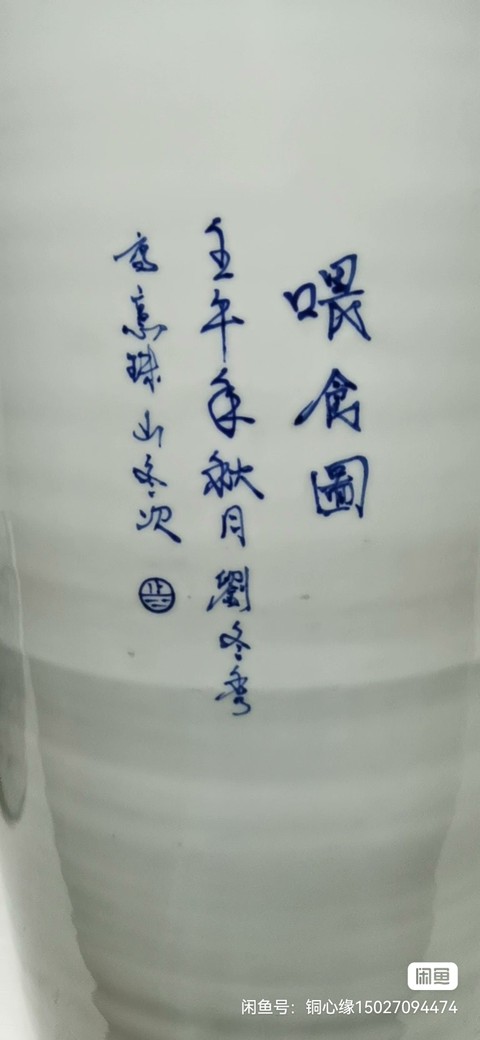 喂食圖
壬午年秋月劉冬
意珠山冬次
闲鱼
闲鱼号：铜心缘15027094474